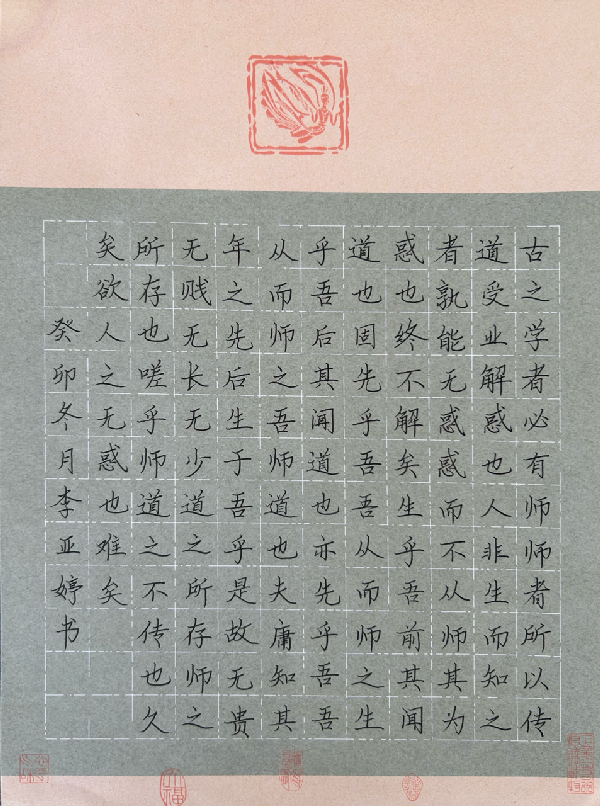 古之学者必有师师者所以传
道受业解惑也人非生而知之
者孰能无惑惑而不从师其为
惑也终不解矣生乎吾前其闻
道也固先乎吾吾从而师之生
乎吾后其闻道也亦先乎吾吾
从而师之吾师道也夫庸知其
年之先后生于吾乎是故无贵
无贱无长无少道之所存师之
所存也嗟乎师道之不传也久
矣欲人之无惑也难矣
癸卯冬月李亚婷书